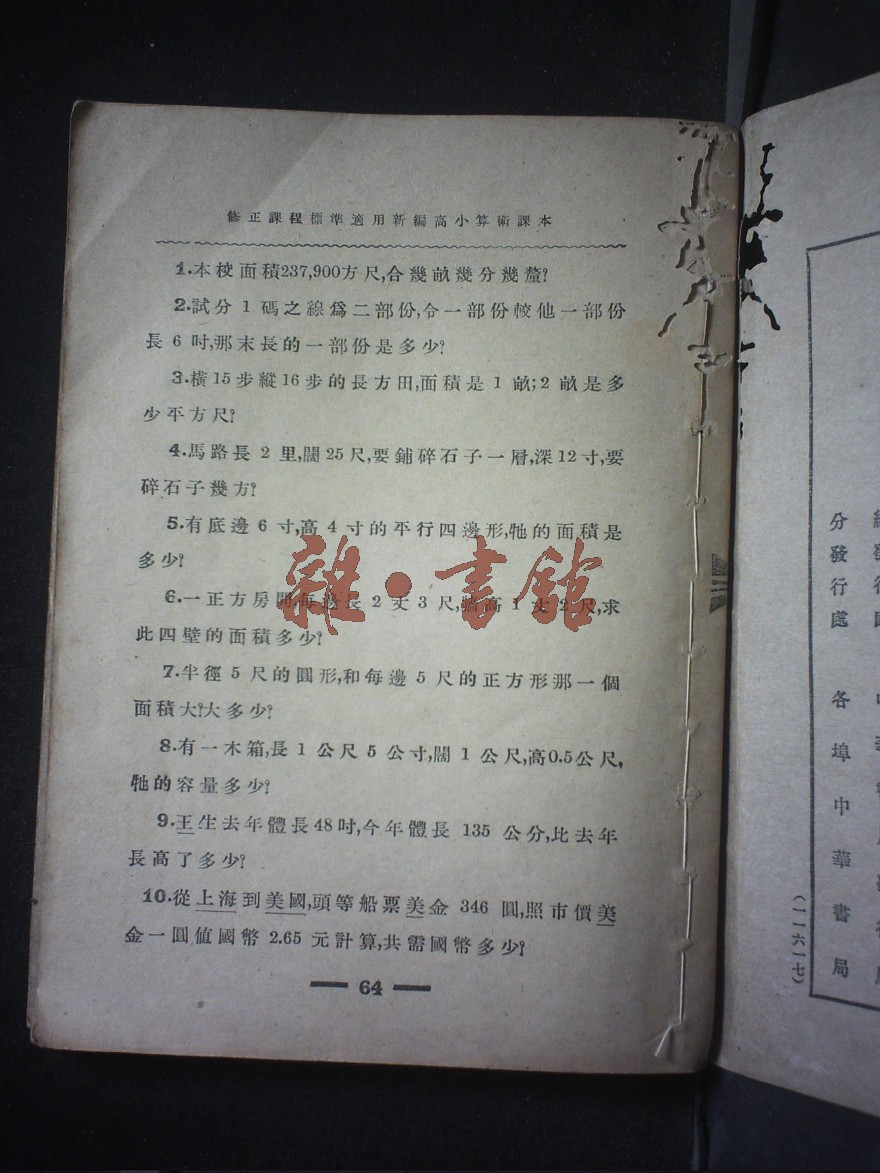 修正課程標準適用新編高小算術課本
1.本校面積237,900方尺,合幾畝幾分幾釐?
2.試分1碼之線爲二部份,令一部份較他一部份
長6吋,那末長的一部份是多少?
3.橫15步縱16步的長方田,面積是1畝;2畝是多
少平方尺?
4.馬路長2里,闊25尺,要鋪碎石子一層,深12寸,要
碎石子幾方?
5.有底邊6寸,高4寸的平行四邊形,牠的面積是
多少?
6.一正方房間每邊長2丈3尺,牆高1丈2尺,求
此四壁的面積多少?
7.半徑5尺的圓形,和每邊5尺的正方形那一個
面積大?大多少?
8.有一木箱,長1公尺5公寸,闊1公尺,高0.5公尺,
牠的容量多少?
9.王生去年體長48吋,今年體長135公分,比去年
長高了多少?
10.從上海到美國,頭等船票美金346圓,照市價美
金一圓值國幣2.65元計算,共需國幣多少?
64
雜·書館
分發行處 各埠中華書局
(一一六一七)